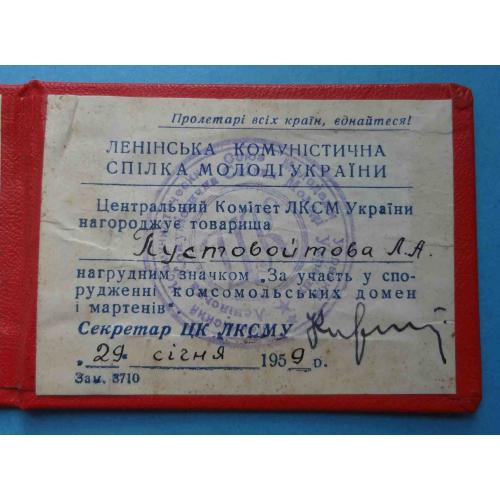 Пролетарі всіх країн, єднайтеся!
ЛЕНІНСЬКА КОМУНІСТИЧНА
СПІЛКА МОЛОДІ УКРАЇНИ
Центральний Комітет ЛКСМ України
нагороджує товариша
Пустовойтова Л.А.
нагрудним значком „За участь у спо-
рудженні комсомольських домен
і мартенів“
Секретар ЦК ЛКСМУ
„29“ січня 1959 р.
Зам. 3710